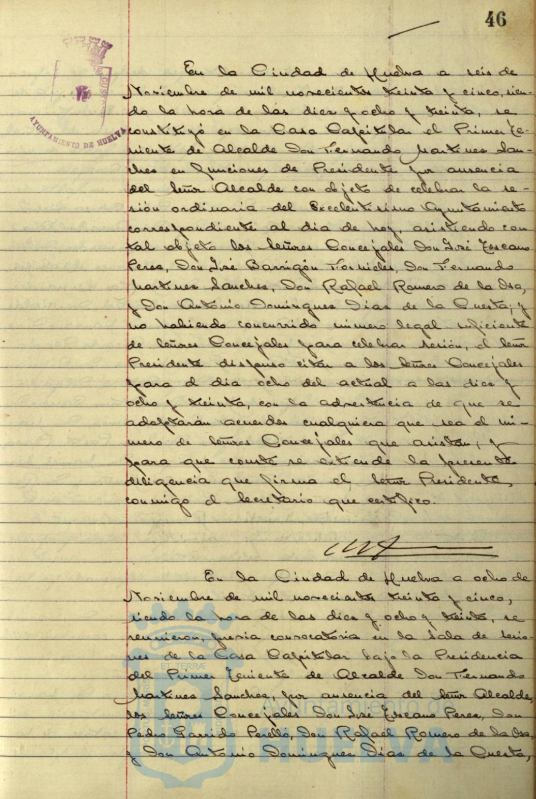 46
AYUNTAMIENTO DE HUELVA
En la Ciudad de Huelva a seis de
Noviembre de mil novecientos treinta y cinco, sien-
do la hora de las diez y ocho y treinta, se
constituyó en la Casa Capitular el Primer Te-
niente de Alcalde Don Fernando Martinez San-
chez en funciones de Presidente por ausencia
del Señor Alcalde con objeto de celebrar la se-
sión ordinaria del Excelentisimo Ayuntamiento
correspondiente al dia de hoy, asistiendo con
tal objeto los Señores Concejales Don José Toscano
Perez, Don José Barrigón Fornieles, Don Fernando
Martinez Sanchez, Don Rafael Romero de la Osa,
y Don Antonio Dominguez Dias de la Cuesta; y
no habiendo concurrido número legal suficiente
de Señores Concejales para celebrar sesión, el Señor
Presidente dispuso citar a los Señores Concejales
para el dia ocho del actual a las diez y
ocho y treinta, con la advertencia de que se
adoptarán acuerdos cualquiera que sea el nú-
mero de Señores Concejales que asistan, y
para que conste se extiende la presente
diligencia que firma el Señor Presidente,
conmigo el Secretario que certifico.
En la Ciudad de Huelva a ocho de
Noviembre de mil novecientos treinta y cinco,
siendo la hora de las diez y ocho y treinta, se
reunieron, previa convocatoria en la Sala de Sesio-
nes de la Casa Capitular bajo la Presidencia
del Primer Teniente de Alcalde Don Fernando
Martinez Sanchez, por ausencia del Señor Alcalde,
los Señores Concejales Don José Toscano Perez, Don
Pedro Garrido Perelló, Don Rafael Romero de la Osa,
y Don Antonio Dominguez Dias de la Cuesta,
Ayuntamiento de
HUELVA